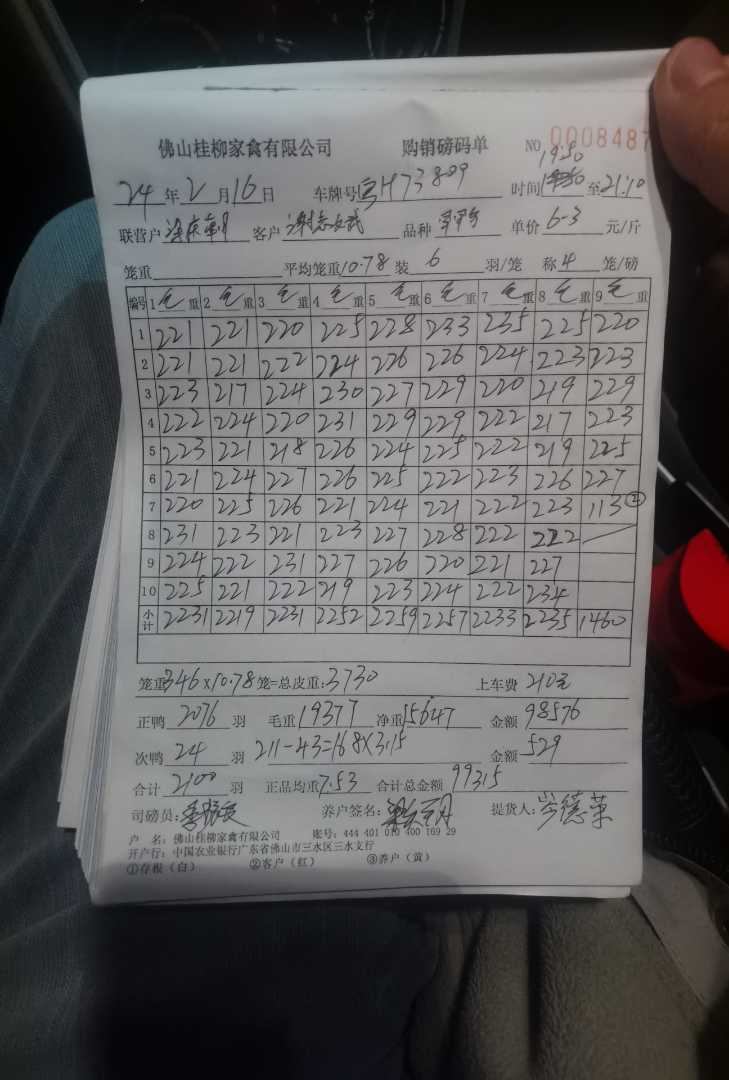 佛山桂柳家禽有限公司 购销磅码单 NO 0008487
19:50
24年2月16日 车牌号 H73809 时间 至21:10
联营户 客户 品种 单价6-3元/斤
笼重 平均笼重10.78 装6羽/笼 称4笼/磅
编号 1毛重 2毛重 3毛重 4毛重 5毛重 6毛重 7毛重 8毛重 9毛重
1 221 221 220 225 228 233 235 225 220
2 221 221 222 224 226 226 224 223 223
3 223 217 224 230 227 229 220 219 229
4 222 224 220 231 229 229 222 217 223
5 223 221 218 226 224 225 222 219 225
6 221 224 227 226 225 222 223 226 227
7 220 225 226 221 224 221 222 223 113②
8 231 223 221 223 227 228 222 222
9 224 222 231 227 226 220 221 227
10 225 221 222 219 223 224 222 234
小计 2231 2219 2231 2252 2259 2257 2233 2235 1460
笼重346×10.78笼=总皮重:3730 上车费210元
正鸭2076羽 毛重19377 净重15647 金额98576
次鸭24羽 211-43=168×3.15 金额529
合计2100羽 正品均重7.53 合计总金额99315
司磅员: 养户签名: 提货人:岑德荣
户 名:佛山桂柳家禽有限公司 账号:444 401 010 400 169 29
开户行:中国农业银行广东省佛山市三水区三水支行
①存根(白) ②客户(红) ③养户(黄)